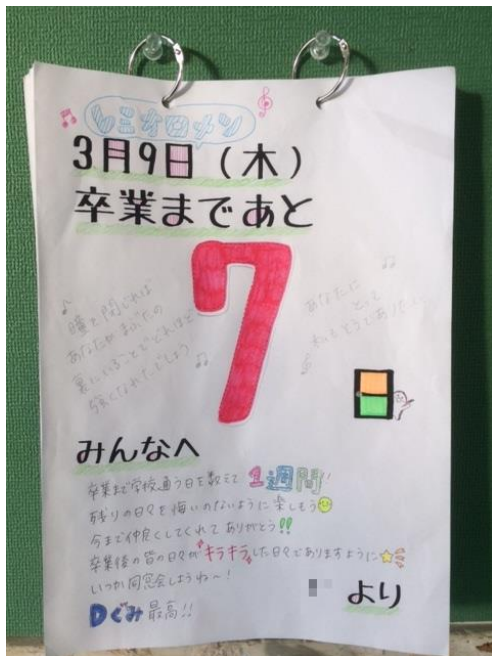 レミオロメン
3月9日（木）
卒業まであと
7
瞳を閉じれば
あなたがまぶたの
裏にいることでどれほど
強くなれたでしょう
あなたに
とって
私もそうでありたい
みんなへ
卒業まで学校通う日を数えて 1週間!
残りの日々を悔いのないように楽しもう
今まで仲良くしてくれてありがとう!!
卒業後の皆の日々がキラキラした日々でありますように
いつか同窓会しようね〜!
Dぐみ最高!!
より